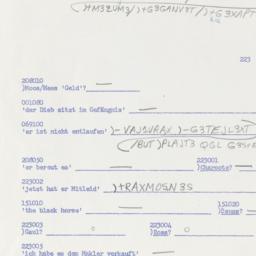 )+M3ZUM3/)+G3GANV3T/)+G3XAPT
223
208010
)Moos/Maos 'Geld'?
001080
'der Dieb sitzt im Gefängnis'
069100
'er ist nicht entlaufen' )-VAJSVRAX )-G3TEJL 3XT
(/BUT)PLAJT3 QGL G3S
208050 223001
'er bereut es' )Charoote?
223002
'jetzt hat er Mitleid' )+RAXMOSN3S
151010 151020
'the black horse' )Ssuss?
223003 223004
)Gaul? )Ross?
223005
'ich habe es dem Makler verkauft'